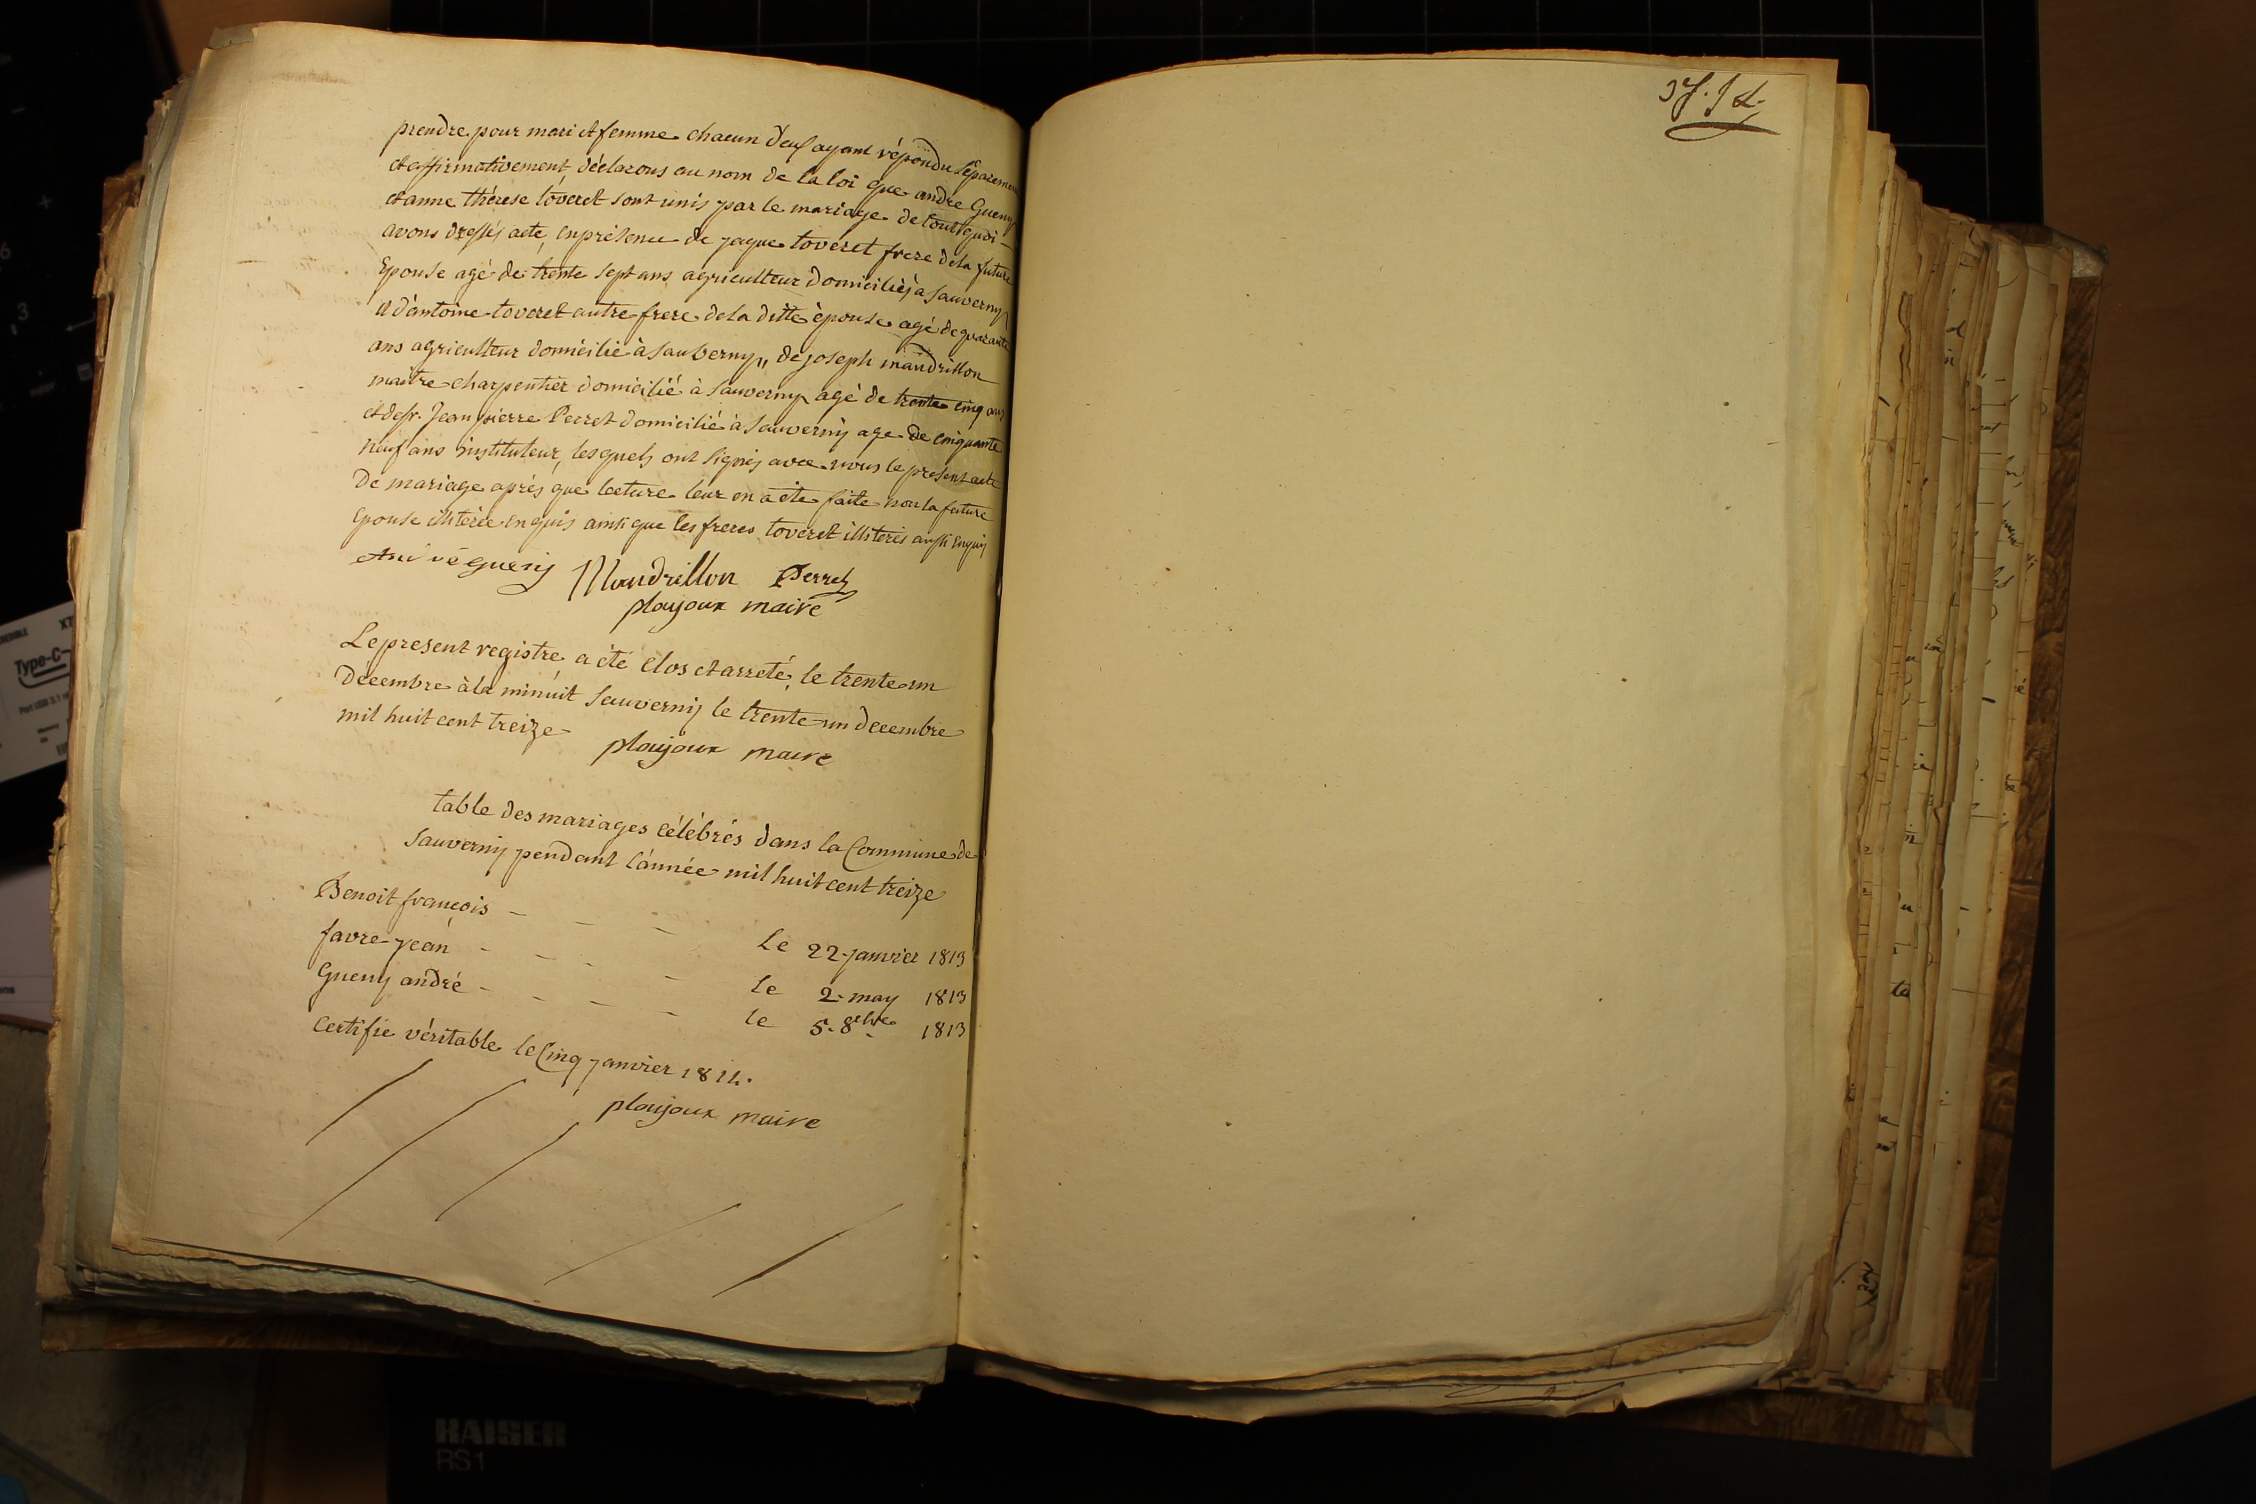 prendre pour mari et femme chacun d'eux ayant répondu séparement
et affirmativement, déclarons au nom de la loi que andré Gueny
et anne thérese toveret sont unis par le mariage de tout quoi
avons dressés acte, en présence de jaque toveret frere de la future
Epouse agé de trente sept ans agriculteur domiciliés à Sauverny,
et d'antoine toveret autre frere de la ditte épouse agé de quarante
ans agriculteur domicilié à Sauverny, de joseph mandrillon
maitre charpentier domicilié à Sauverny agé de trente cinq ans
et de sr. Jean pierre Perret domicilié à Sauverny age de cinquante
neuf ans instituteur, lesquels ont signés avec nous le present acte
de mariage aprés que lecture leur en a ete faite non la future
epouse illiterée enquis ainsi que les freres toveret illiterés aussi enquis
André gueny Mandrillon Perret
ploujoux maire
Le present registre a été clos et arreté, le trente un
décembre à la minuit Sauverny le trente un decembre
mil huit cent treize
ploujoux maire
table des mariages célébrés dans la Commune de
Sauverny pendant l'année mil huit cent treize
Benoit françois - - - Le 22 janvier 1813
favre jean - - - - le 2 may 1813
Gueny andré - - - - le 5. 8bre 1813
Certifie véritable le Cinq janvier 1814.
ploujoux maire
KAISER
RS1
Type-C